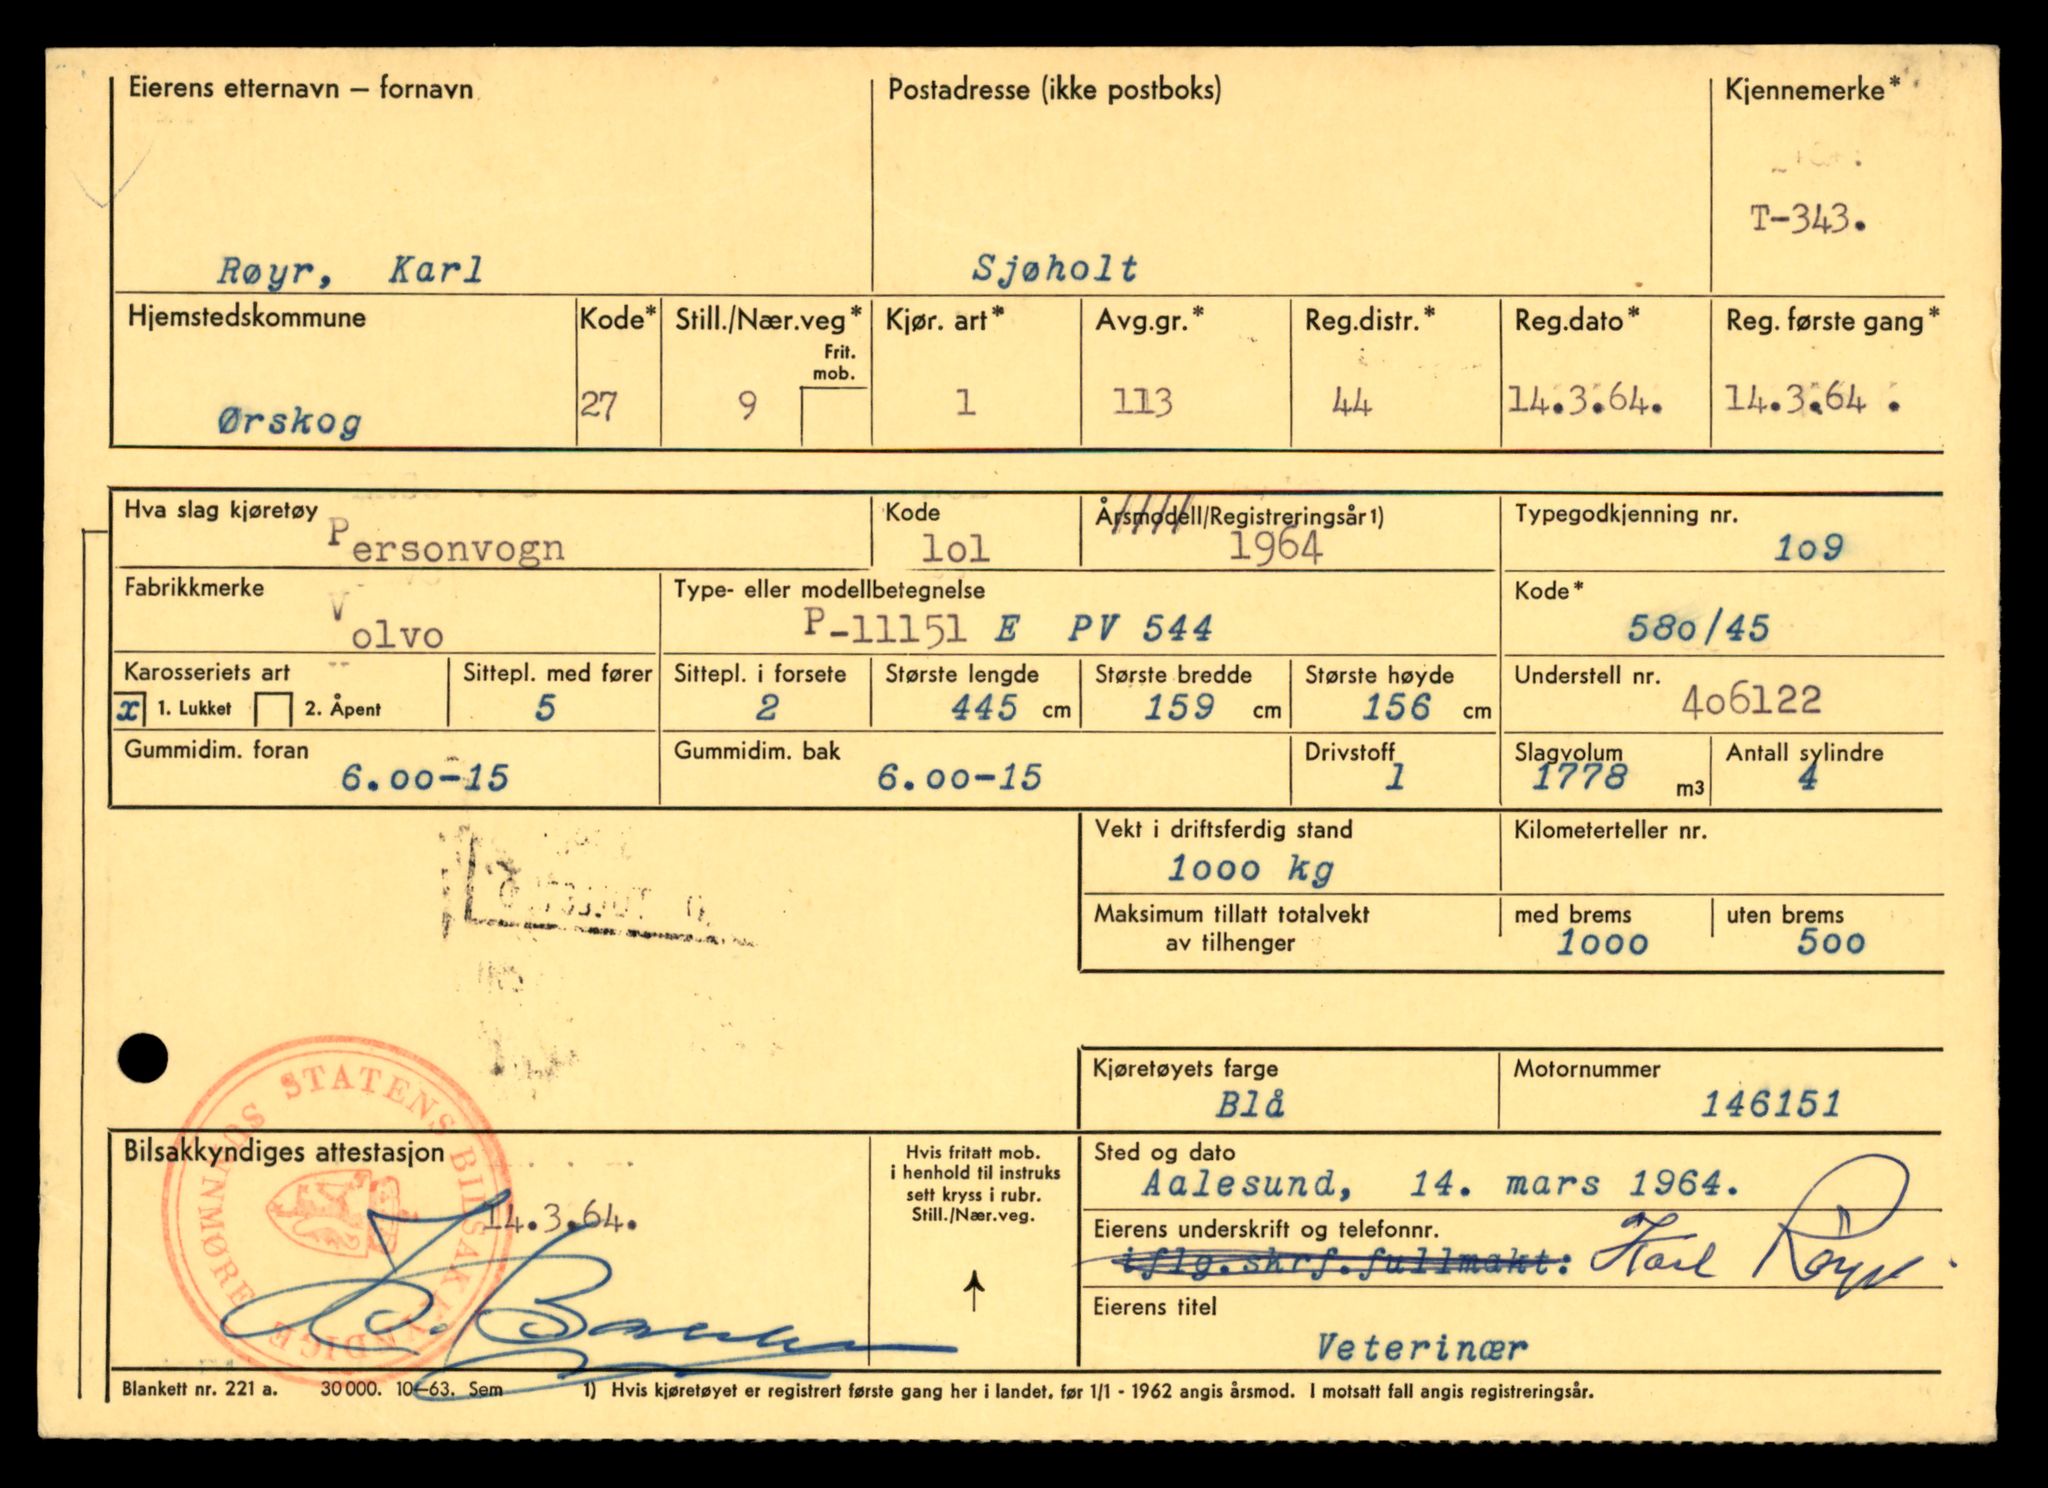 Eierens etternavn – fornavn
Postadresse (ikke postboks)
Kjennemerke*
T-343.
Røyr, Karl
Sjøholt
Hjemstedskommune
Kode*
Still./Nær.veg*
Frit.
mob.
Kjør. art*
Avg.gr.*
Reg.distr.*
Reg.dato*
Reg. første gang*
Ørskog
27
9
1
113
44
14.3.64.
14.3.64.
Hva slag kjøretøy
Personvogn
Kode
lol
Årsmodell/Registreringsår1)
1964
Typegodkjenning nr.
1o9
Fabrikkmerke
Volvo
Type- eller modellbetegnelse
P-11151 E PV 544
Kode*
58o/45
Karosseriets art
x 1. Lukket 2. Åpent
Sittepl. med fører
5
Sittepl. i forsete
2
Største lengde
445 cm
Største bredde
159 cm
Største høyde
156 cm
Understell nr.
4o6122
Gummidim. foran
6.oo-15
Gummidim. bak
6.oo-15
Drivstoff
1
Slagvolum
1778 m3
Antall sylindre
4
Vekt i driftsferdig stand
1ooo kg
Kilometerteller nr.
Maksimum tillatt totalvekt
av tilhenger
med brems
1ooo
uten brems
5oo
Kjøretøyets farge
Blå
Motornummer
146151
STATENS BILSAKKYNDIGE
MØRE
Bilsakkyndiges attestasjon
14.3.64.
Hvis fritatt mob.
i henhold til instruks
sett kryss i rubr.
Still./Nær.veg.
Sted og dato
Aalesund, 14. mars 1964.
Eierens underskrift og telefonnr.
iflg.skrf.fullmakt: Karl Røyr
Eierens titel
Veterinær
Blankett nr. 221 a. 30 000. 10–63. Sem
1) Hvis kjøretøyet er registrert første gang her i landet, før 1/1 - 1962 angis årsmod. I motsatt fall angis registreringsår.